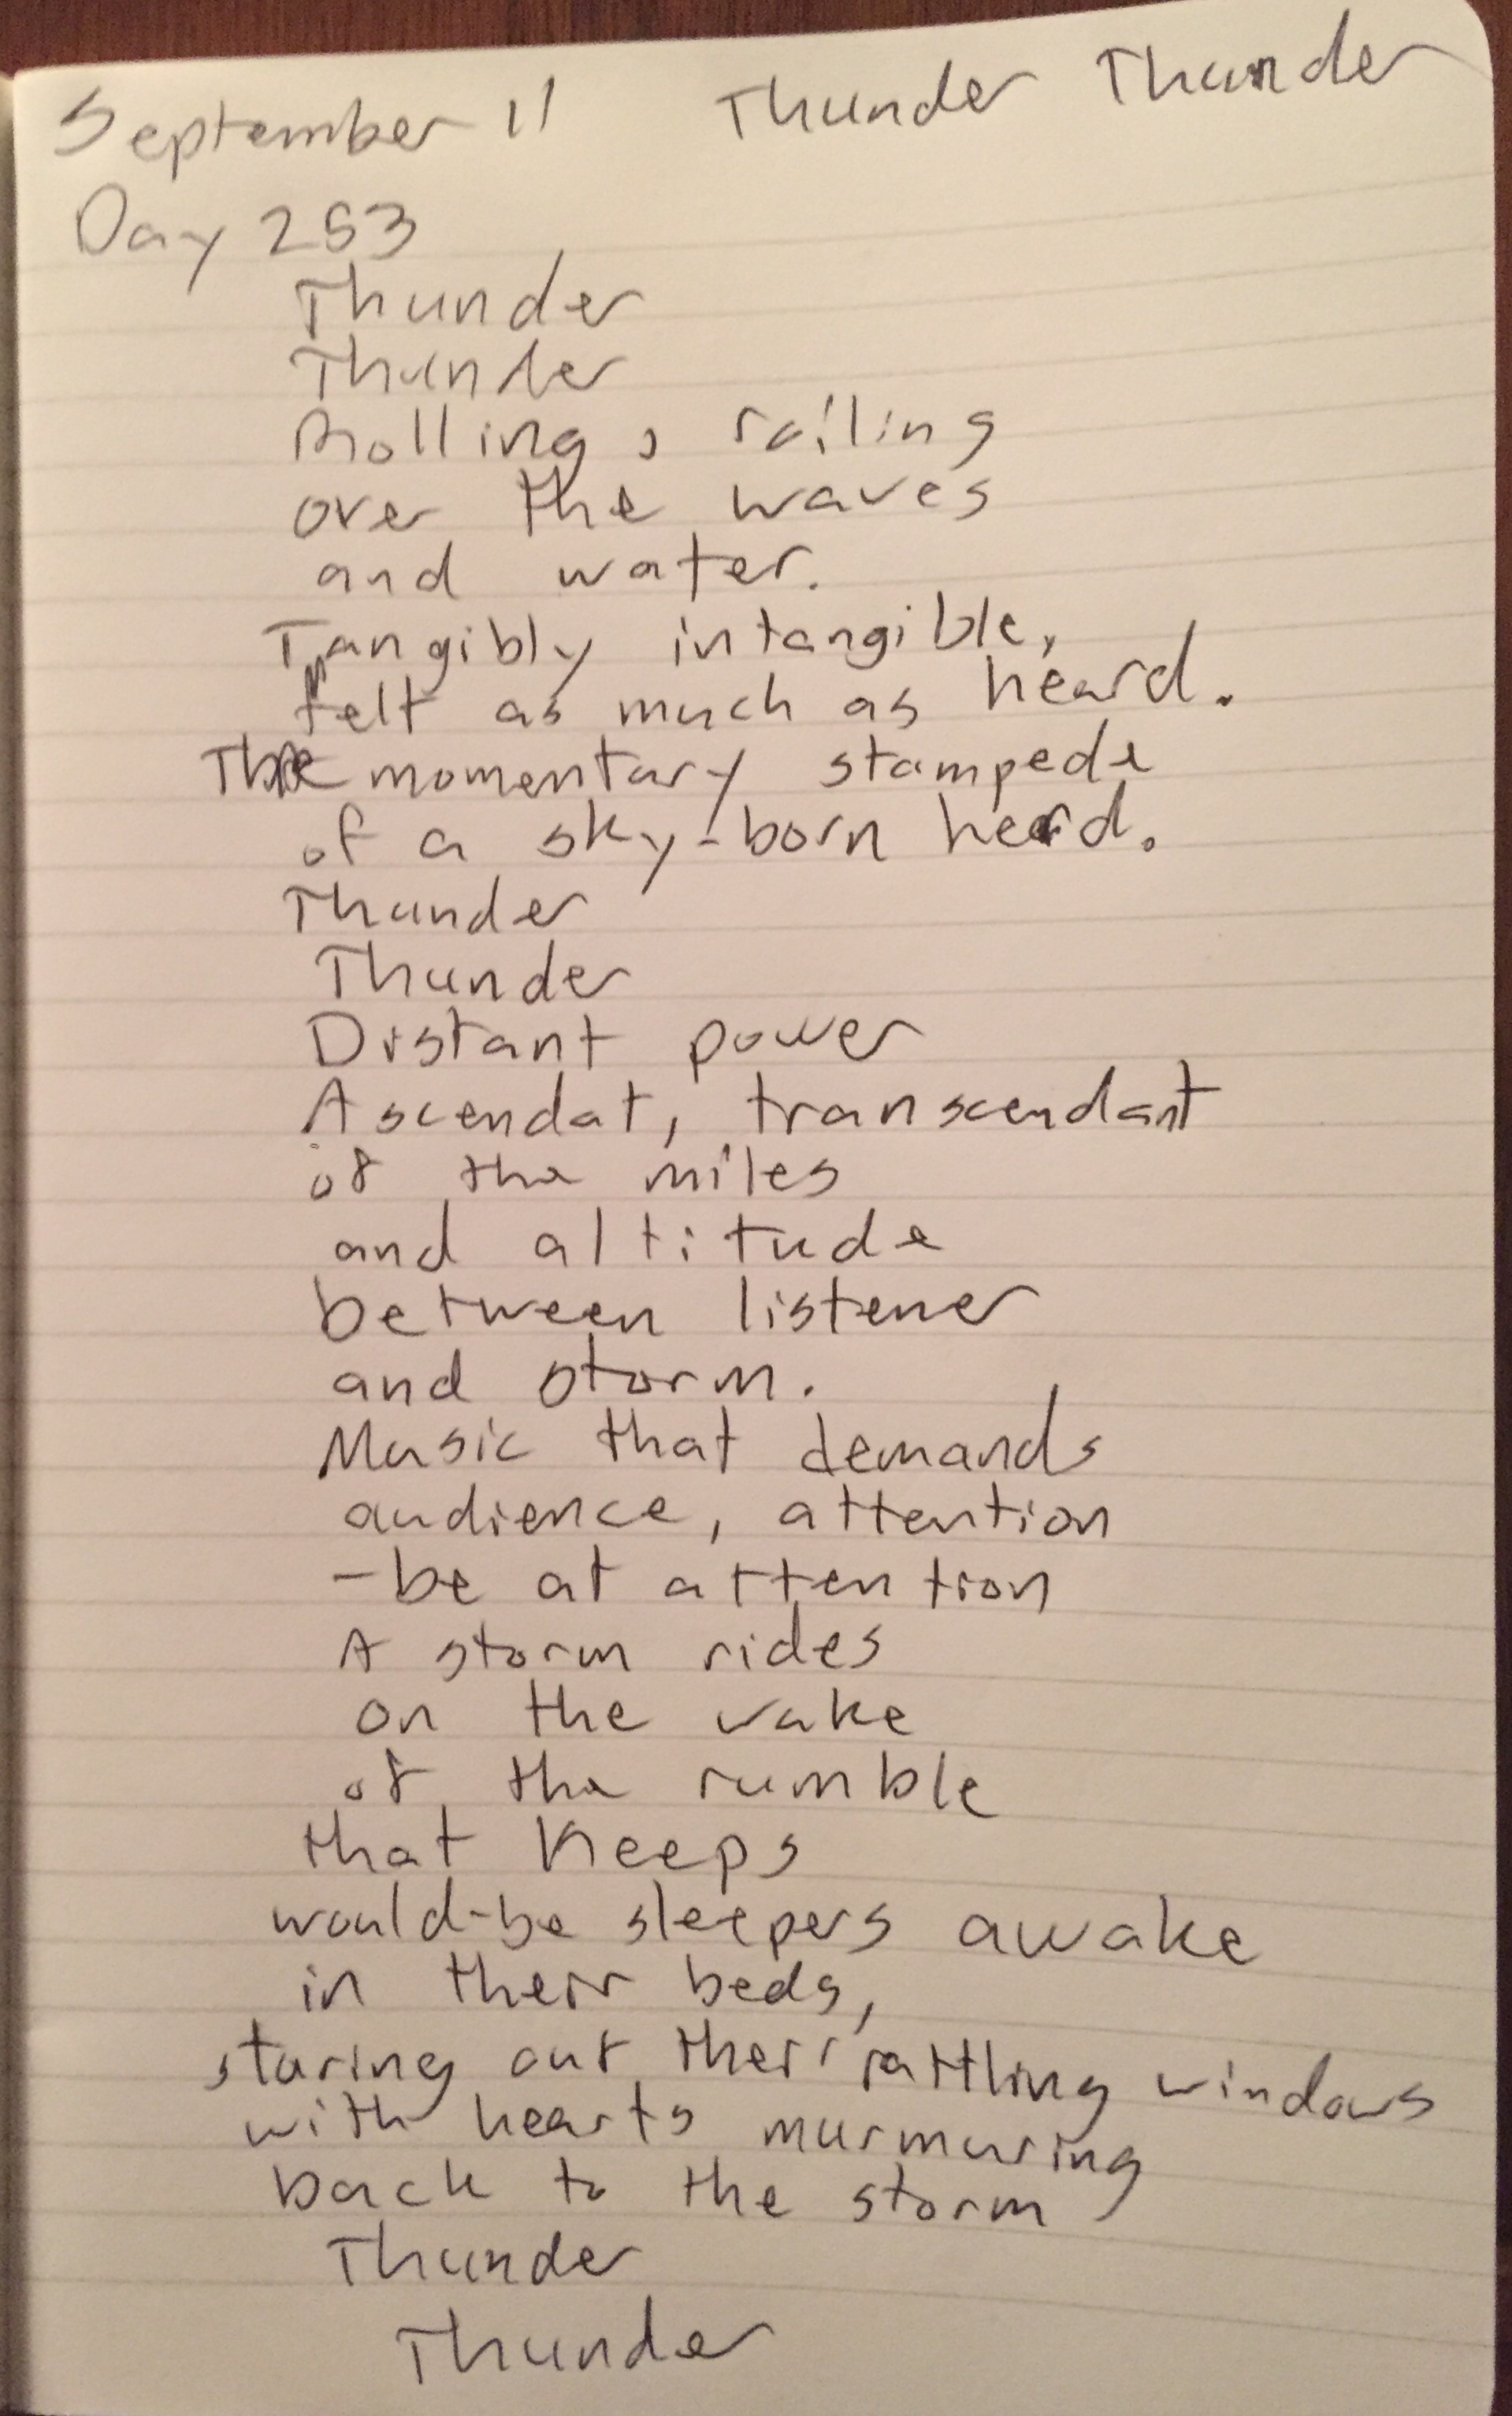 September 11 Thunder Thunder
Day 253
Thunder
Thunder
Rolling, railing
over the waves
and water.
Tangibly intangible,
felt as much as heard.
The momentary stampede
of a sky-born herd.
Thunder
Thunder
Distant power
Ascendat, transcendant
of the miles
and altitude
between listener
and storm.
Music that demands
audience, attention
-be at attention
A storm rides
on the wake
of the rumble
that keeps
would-be sleepers awake
in their beds,
staring out their rattling windows
with hearts murmuring
back to the storm
Thunder
Thunder